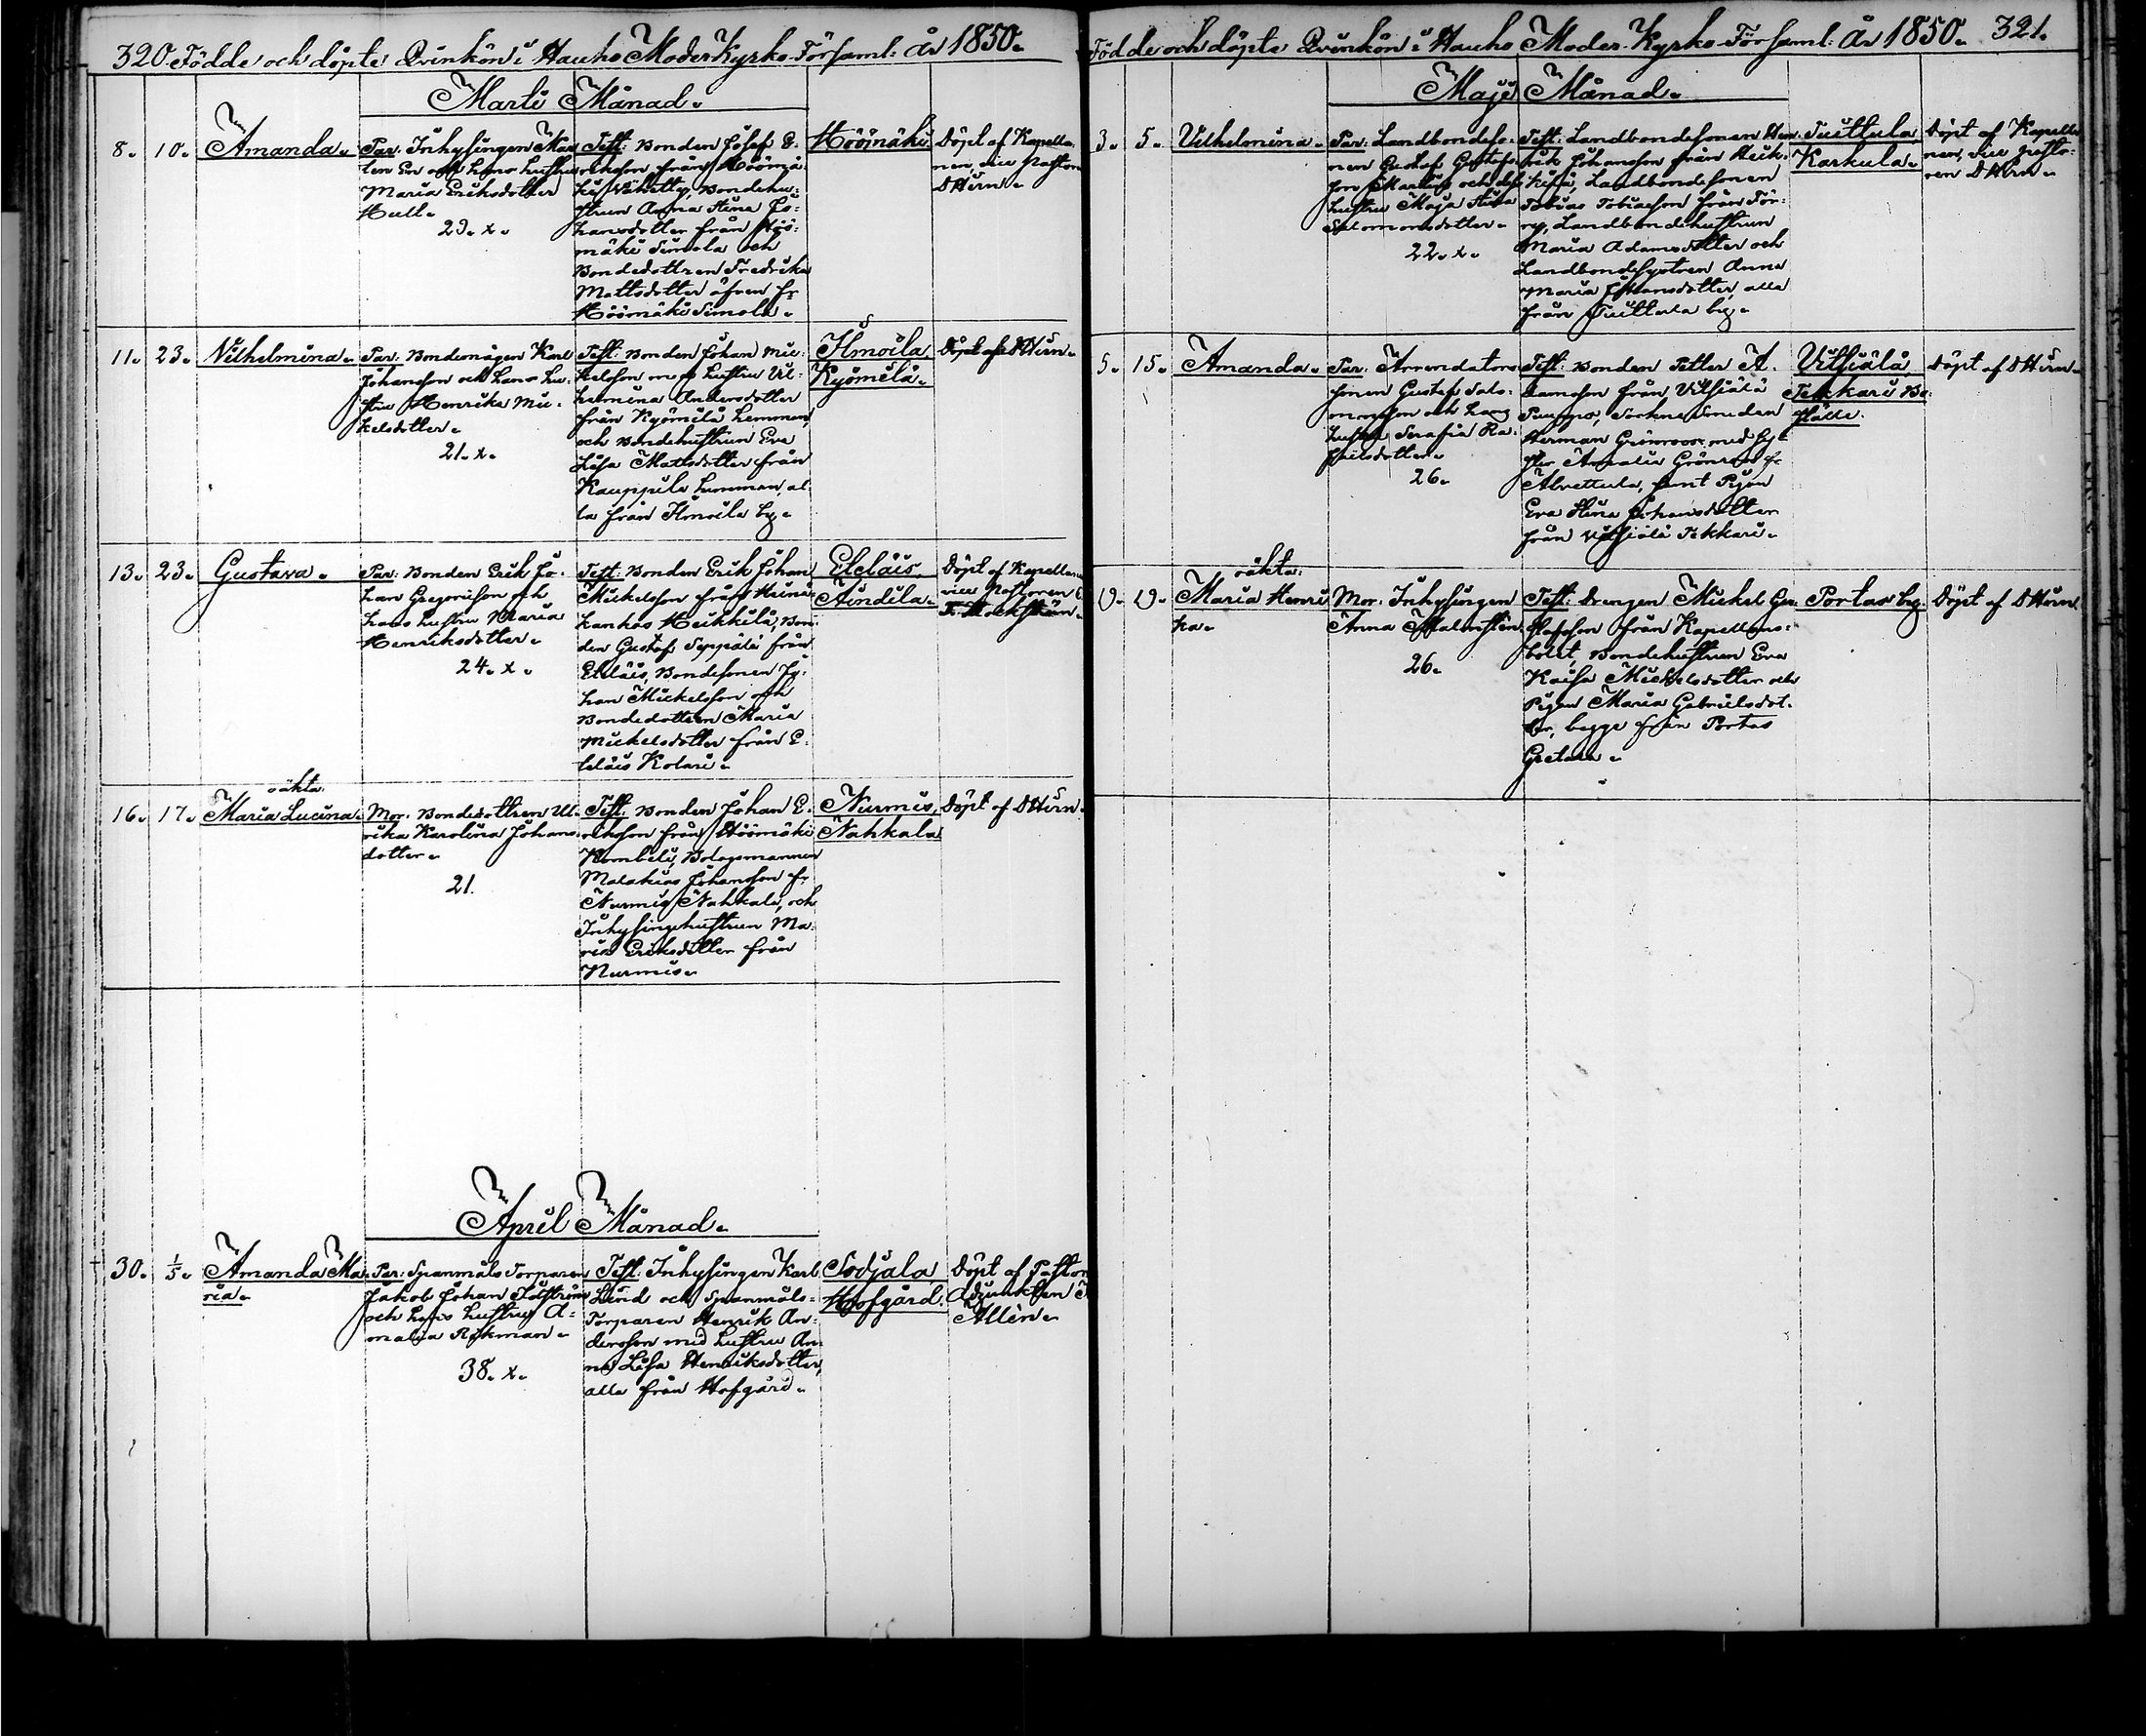 320. Födde och döpte Qvinkön i Hauho Moder Kyrko Församl: År 1850.
Martii Månad.
8. 10. Amanda.
Par: Inhysingen Mar
Maria Eriksdotter
23. x.
Test: Bonden Josef E-
riksson från Höömä-
ki Vähätty, Bondehu-
strun Anna Stina Jo-
hansdotter från Höö-
mäki Simola och
Bondedottren Fredrika
Mattsdotter äfven fr
Höömäki Simola.
Höömäki
Döpt af Kapella-
nen vice Pastorn
DHirn.
11. 23. Vilhelmina.
Par: Bondemågen Karl
Johansson och hans hu-
stru Henrika Mic-
kelsdotter.
21. x.
Test: Bonden Johan Mic-
kelsson med hustru Vil-
helmina Andersdotter
från Kyömilä hemman,
och Bondehustrun Eva
Lisa Mattsdotter från
Kauppila hemman, al-
la från Ilmoila by.
Ilmoila
Kyömilä.
Döpt af DHirn.
13. 23. Gustava.
Par: Bonden Erik Jo-
han Gregorisson och
hans hustru Maria
Henriksdotter.
24. x.
Test: Bonden Erik Johan
Mickelsson från Heina-
kankas Heikkilä, Bon-
den Gustaf Seppälä från
Eteläis, Bondesonen Jo-
han Mickelsson och
Bondedottren Maria
Mickelsdotter från E-
teläis Kolari.
Eteläis,
Äindilä.
Döpt af Kapella
vice Pastoren
16. 17. oäkta: Maria Lucina.
Mor: Bondedottren Ul-
rika Karolina Johans-
dotter.
21.
Test: Bonden Johan E-
riksson från Höömäki
Kombeli, Bolagsmannen
Malakias Johansson fr
Nurmis Nahkala, och
Inhysingehustrun Ma-
ria Eriksdotter från
Nurmis.
Nurmis,
Nahkala
Döpt af DHirn.
April Månad.
30. 1/5. Amanda Ma-
ria.
Par: Spanmåls Torparen
Jakob Johan
och hans hustru A-
malia
38. x.
Test: Inhysingen Karl
Lind och Spanmåls-
Torparen Henrik An-
dersson med hustru An-
na Lisa Henriksdotter,
alla från Hofgård.
Sodjala,
Hofgård.
Döpt af Pastors
Adjunkten
Allén.
Födde och döpte Qvinkön i Hauho Moder-Kyrko Församl: År 1850. 321.
Maji Månad.
3. 5. Vilhelmina.
Par: Landbondeso-
nen Gustaf Gustafs-
son Markus och dess
hustru Maja Stina
Salomonsdotter.
22. x.
Test: Landbondesonen Hen-
rik Johansson från
Landbondesonen
Tobias Tobiasson från Tor-
ry, Landbondehustrun
Maria Adamsdotter och
Landbondesystren Anna
Maria Johansdotter, alla
från Tuittula by.
Tuittula,
Karkula.
Döpt af Kapella-
nen, vice pasto-
ren DHirn.
5. 15. Amanda.
Par: Arrendators-
sonen Gustaf Salo-
monsson och hans
hustru Serafia Ra-
failsdotter.
26.
Test: Bonden Petter A-
damsson från Vitsiälä
Puuppo, Sockne Smeden
Herman Grönroos med sy-
ster Amalia Grönroos fr
Alvettula, samt Pigan
Eva Stina Johansdotter
från Vitsiälä Tekkari.
Vitsiälä,
Tekkari Bo-
ställe.
Döpt af DHirn.
19. 19. oäkta: Maria Henri
ka.
Mor: Inhysingen
Anna Malmsten.
26.
Test: Drengen Mickel Gu-
stafsson från Kapellans-
bolet, Bondehustrun Eva
Kaisa Mickelsdotter och
Pigan Maria Gabrielsdot-
ter, begge från Portas
Gretala.
Portas by.
Döpt af DHirn.